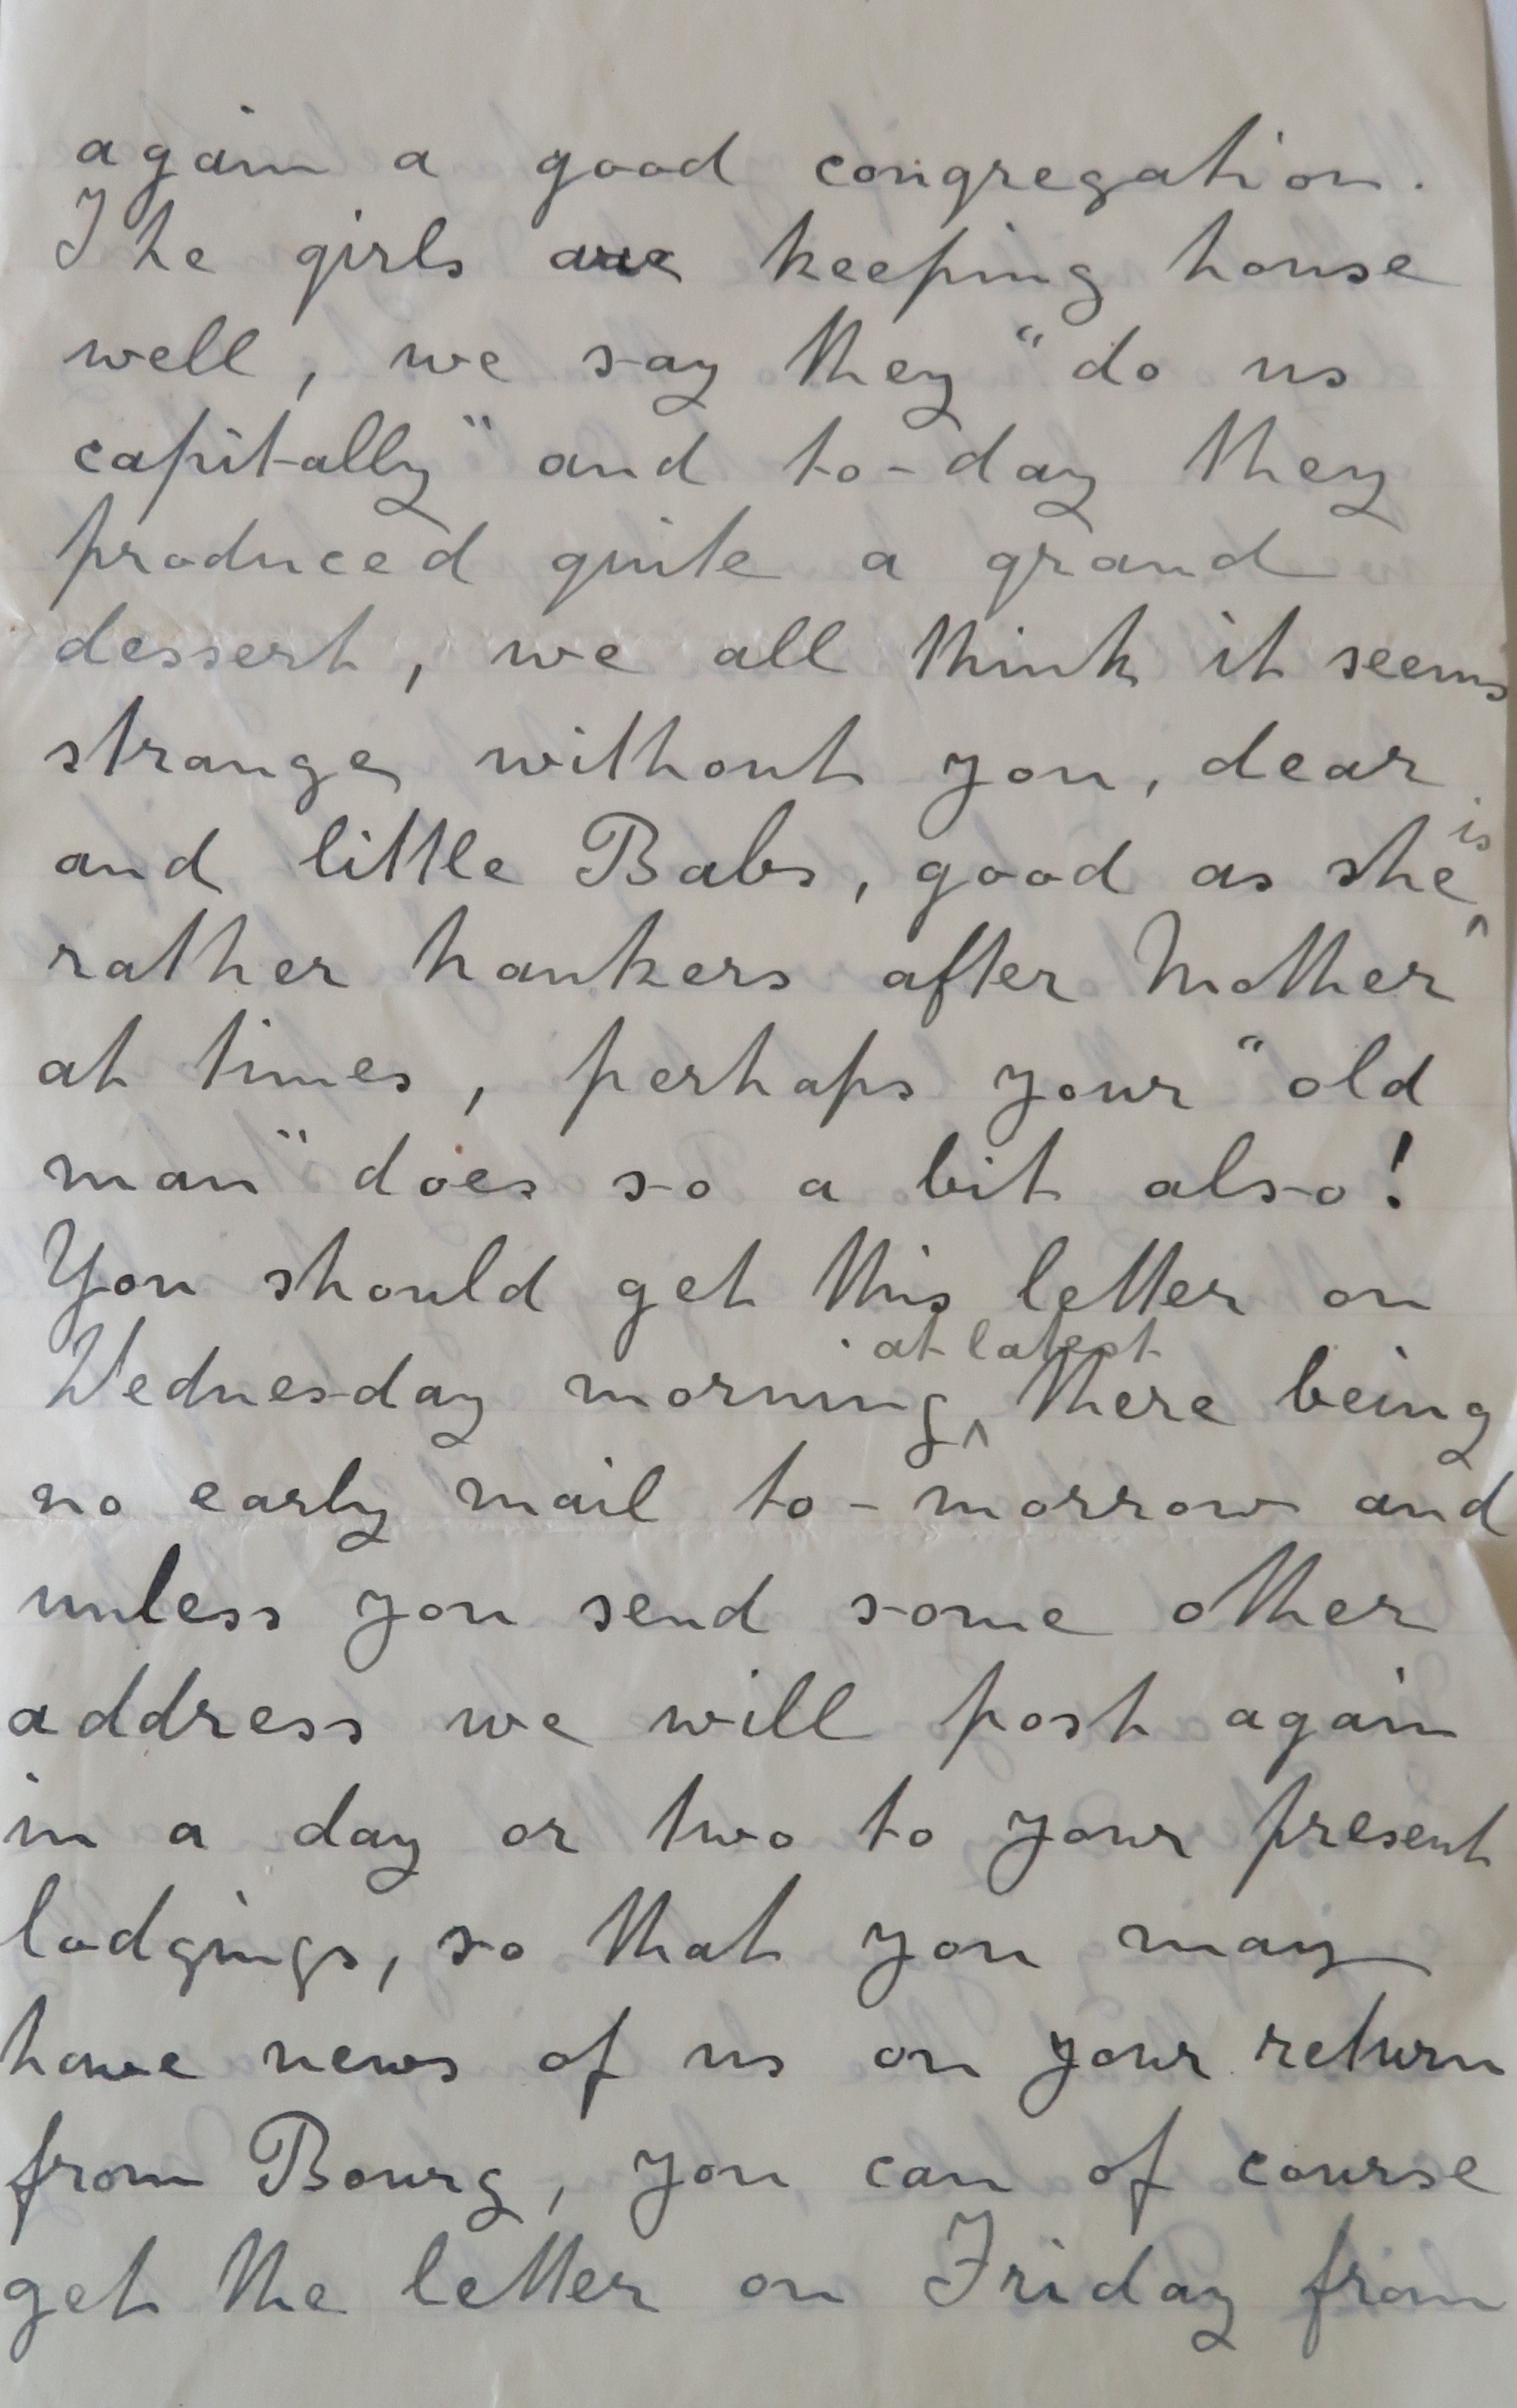 again a good congregation.
The girls are keeping house
well, we say they "do us
capitally" and to-day they
produced quite a grand
dessert, we all think it seems
strange without you, dear
and little Babs, good as she is
rather hankers after Mother
at times, perhaps your "old
man" does so a bit also!
You should get this letter on
Wednesday morning at latest there being
no early mail to-morrow and
unless you send some other
address we will post again
in a day or two to your present
lodgings, so that you may
have news of us on your return
from Bourg, you can of course
get the letter on Friday from